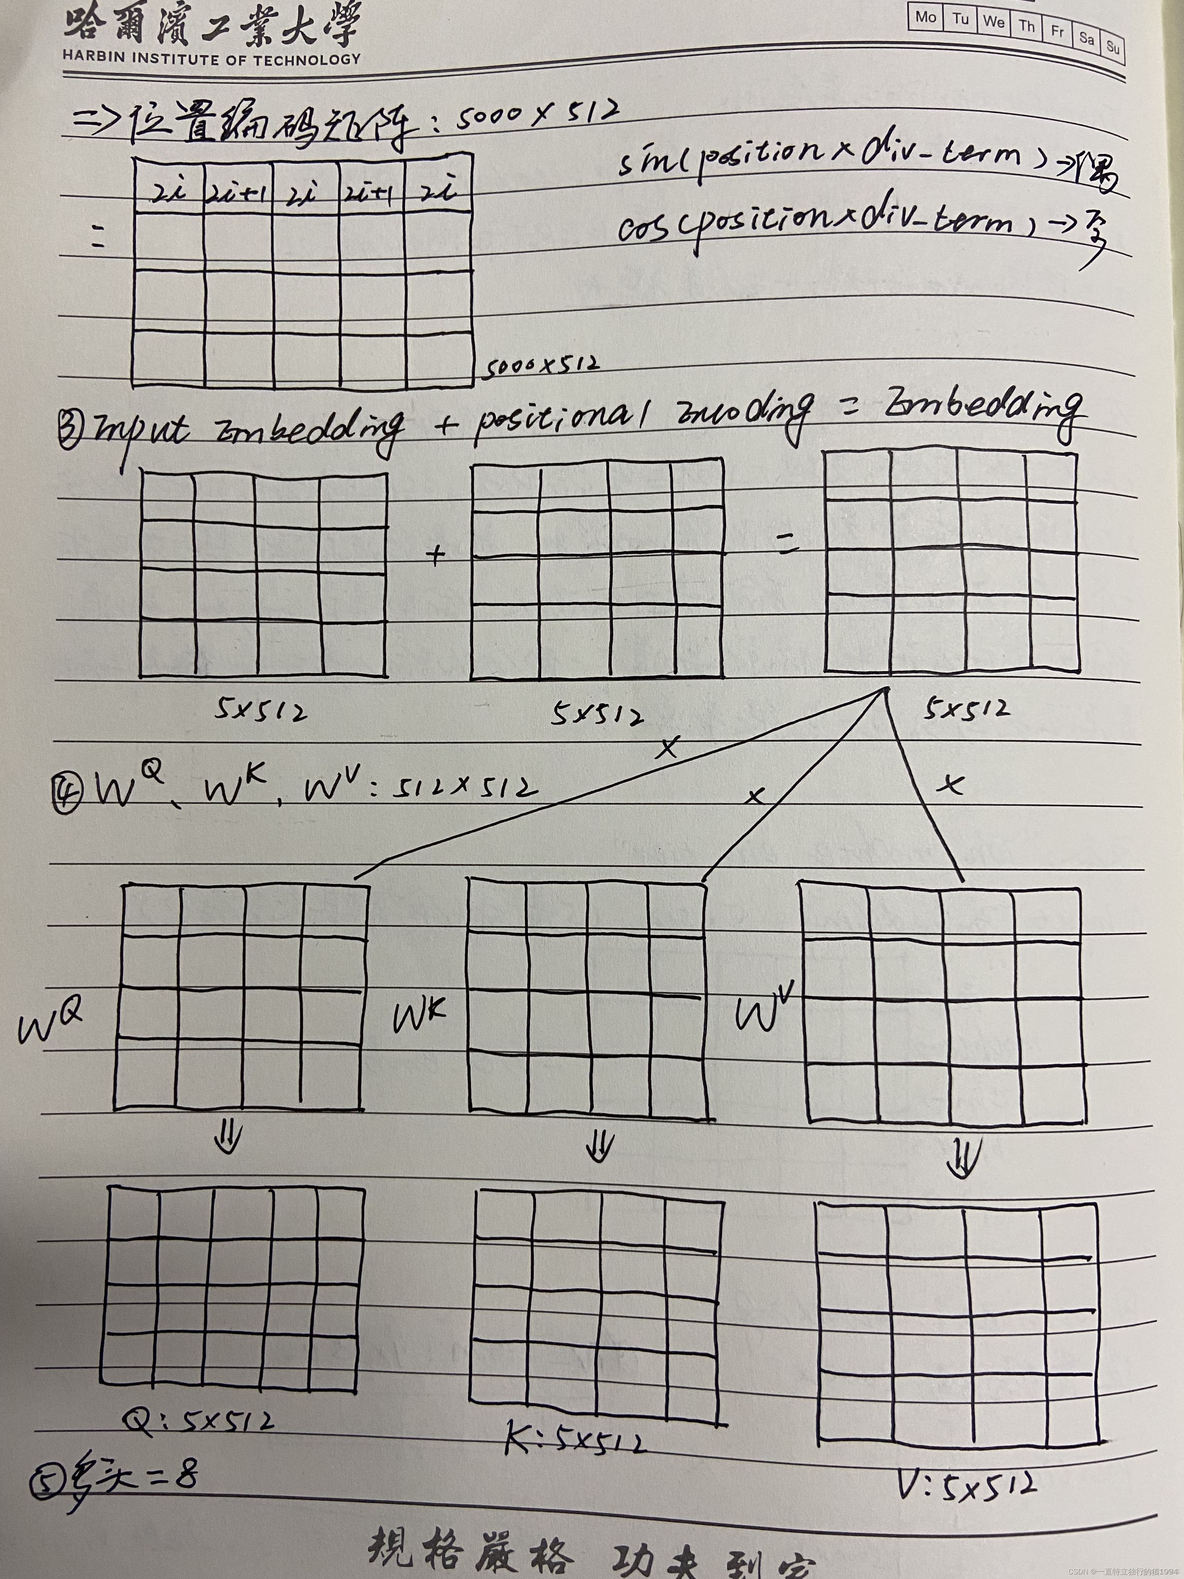 哈爾濱工業大學
HARBIN INSTITUTE OF TECHNOLOGY
Mo Tu We Th Fr Sa Su
=> 位置编码矩阵: 5000×512
sin(position×div_term)→偶
2i 2i+1 2i 2i+1 2i
cos(position×div_term)→奇
=
5000×512
③ Input Embedding + positional Encoding = Embedding
+ =
5×512 5×512 5×512
× × ×
④ W^Q、W^K, W^V: 512×512
W^Q W^K W^V
⇓ ⇓ ⇓
Q: 5×512 K: 5×512 V: 5×512
⑤ 多头=8
規格嚴格 功夫到家
CSDN @一直特立独行的猪1994